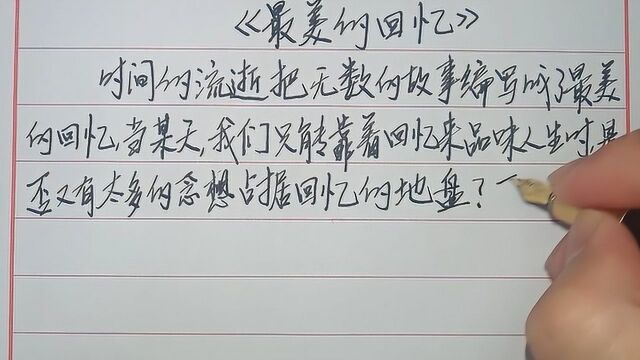 《最美的回忆》
时间的流逝把无数的故事编写成了最美
的回忆,当某天,我们只能靠着回忆来品味人生时,是
否又有太多的念想占据回忆的地盘?一